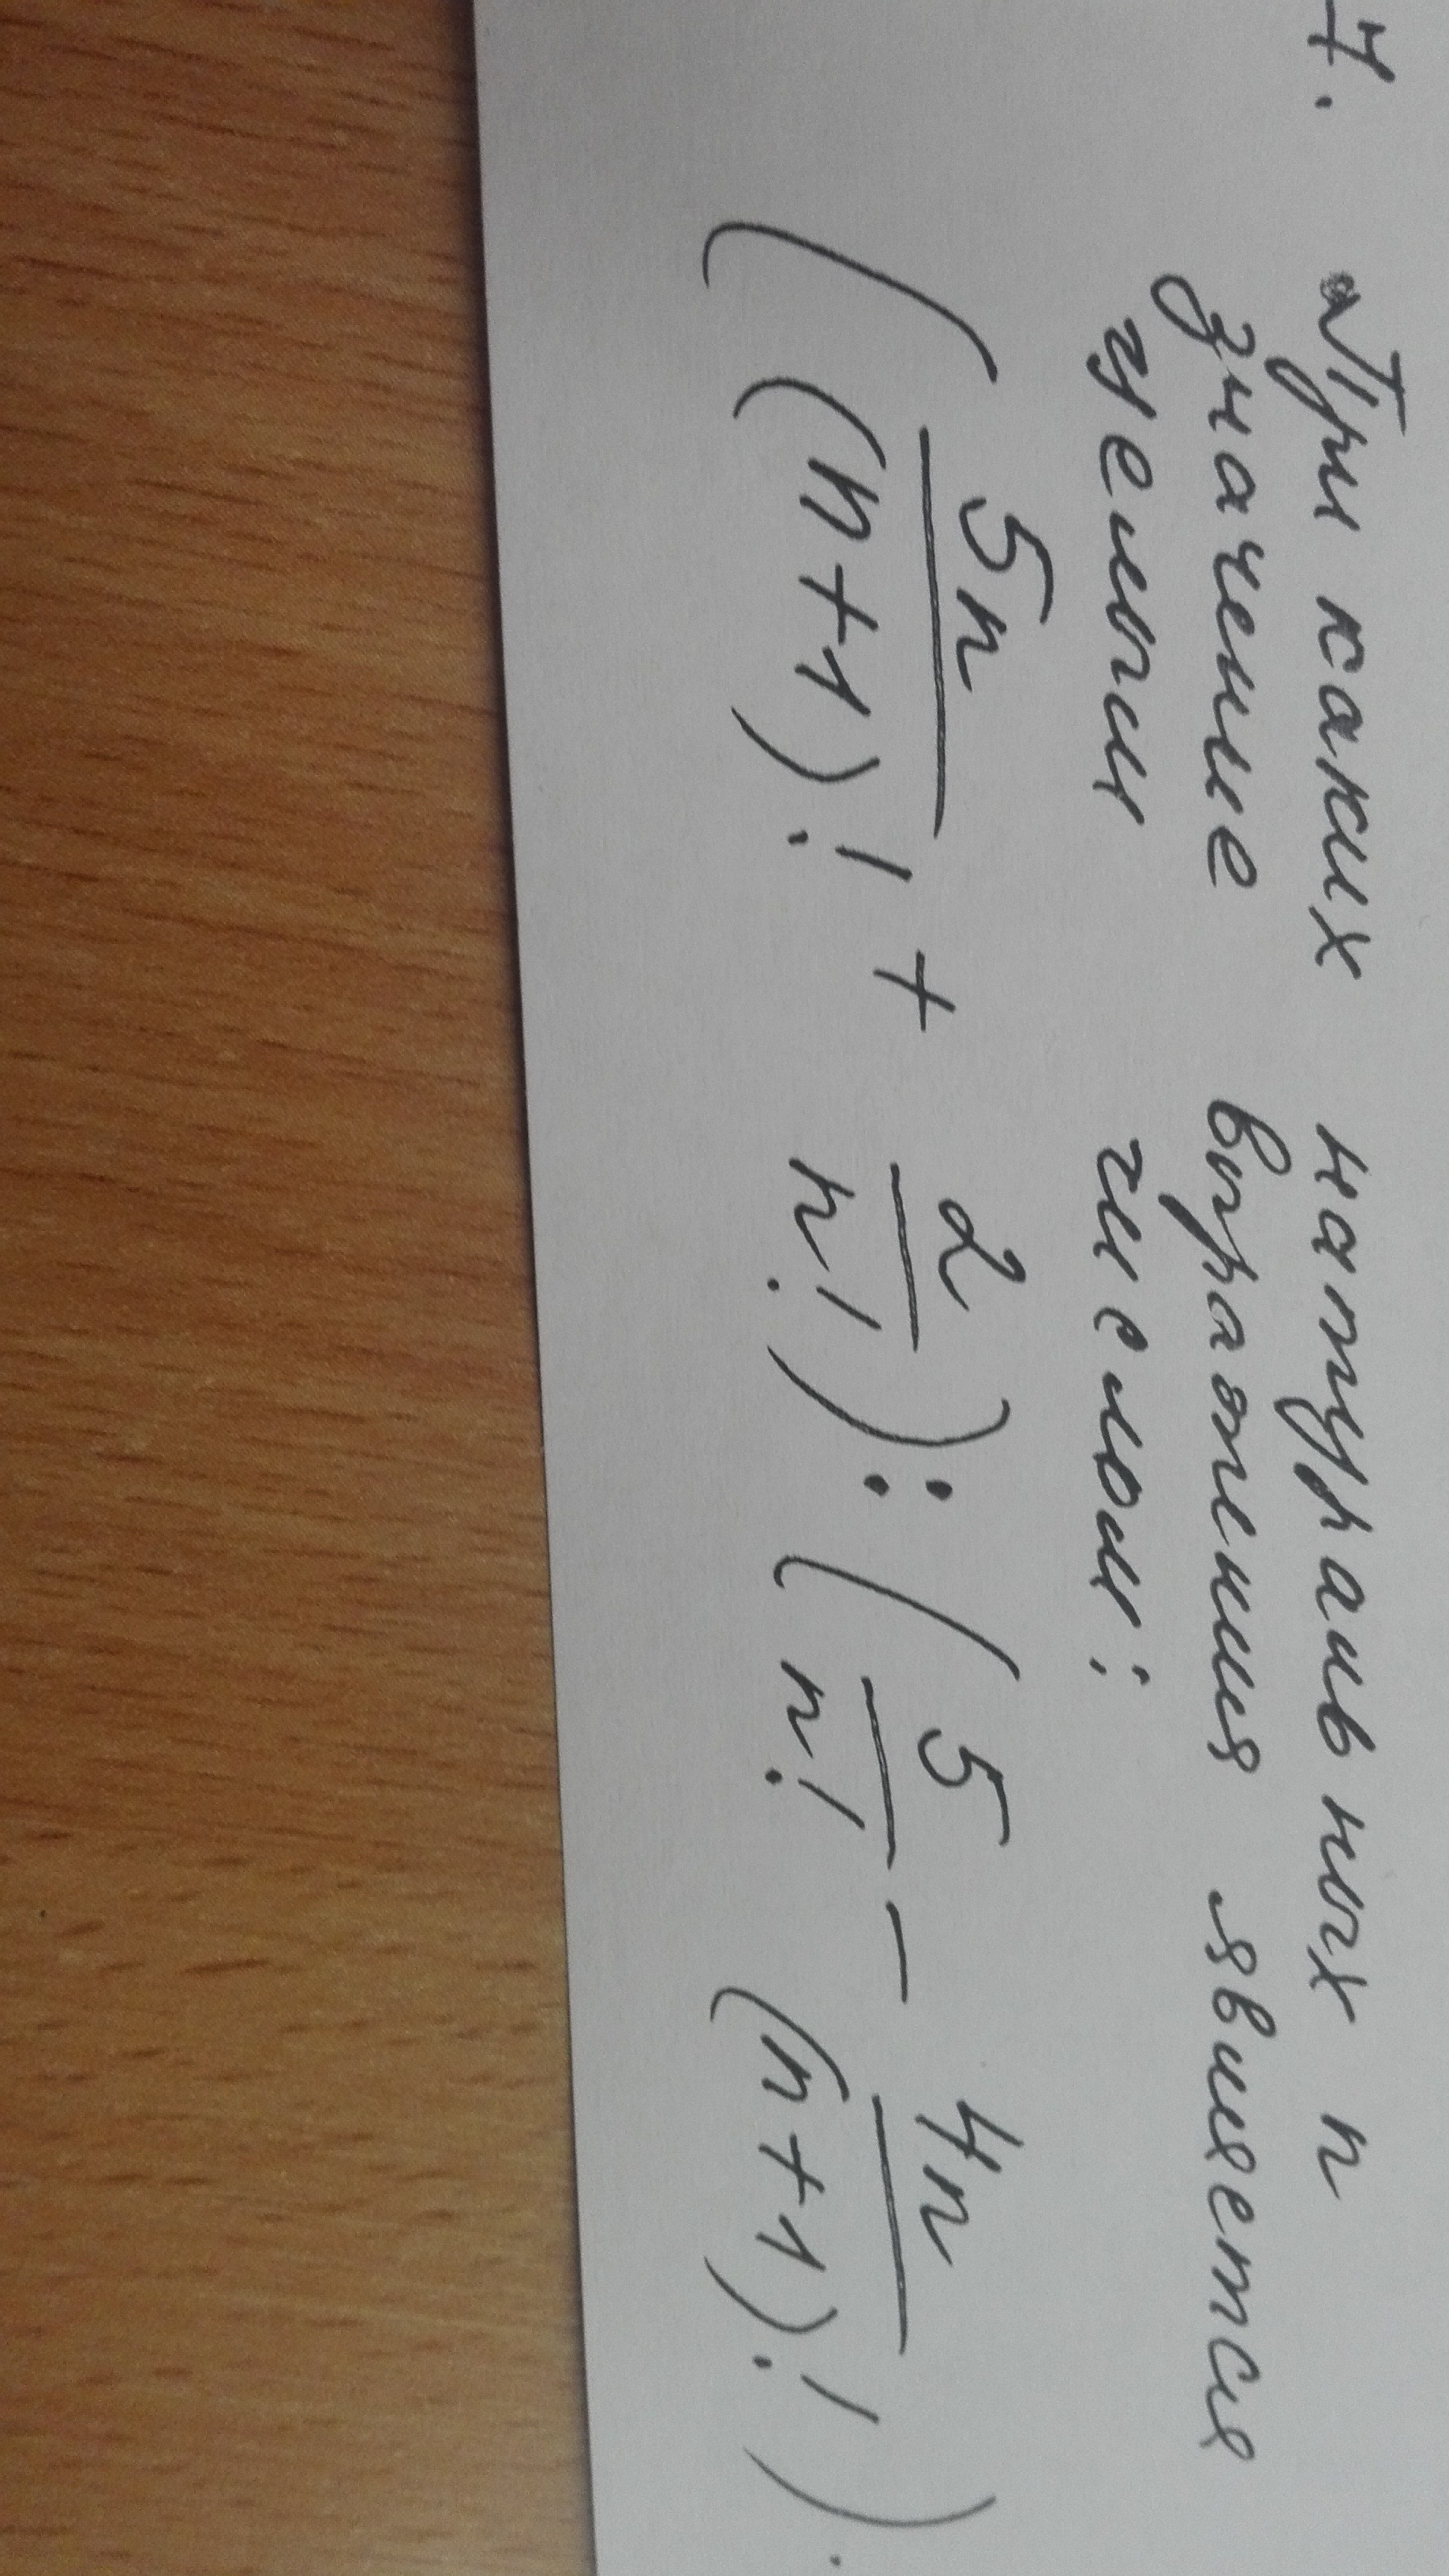 7. При каких натуральных n
значение выражения является
целым числом:
(5n/(n+1)! + 2/n!) : (5/n! - 4n/(n+1)!).